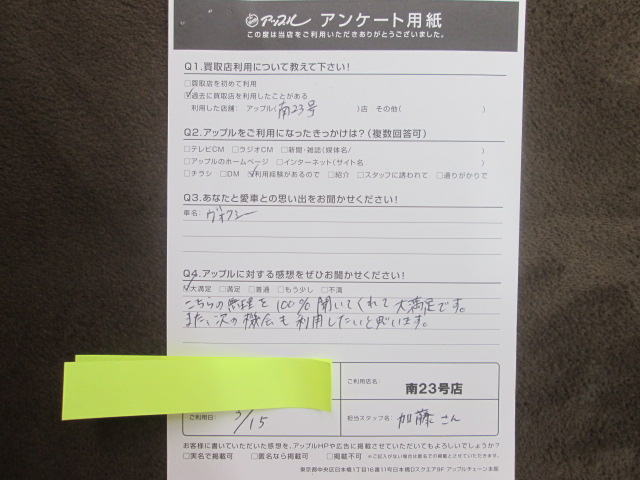 アップル アンケート用紙
この度は当店をご利用いただきありがとうございました。
Q1.買取店利用について教えて下さい！
□買取店を初めて利用
☑過去に買取店を利用したことがある
利用した店舗: アップル(南23号)店 その他( )
Q2.アップルをご利用になったきっかけは？(複数回答可)
□テレビCM □ラジオCM □新聞・雑誌(媒体名/ )
□アップルのホームページ □インターネット(サイト名 )
□チラシ □DM ☑利用経験があるので □紹介 □スタッフに誘われて □通りがかりで
Q3.あなたと愛車との思い出をお聞かせください！
車名: ヴォクシー
Q4.アップルに対する感想をぜひお聞かせください！
☑大満足 □満足 □普通 □もう少し □不満
こちらの無理を100%聞いてくれて大満足です。
また、次の機会も利用したいと思います。
ご利用店名: 南23号店
ご利用日: 3/15 担当スタッフ名: 加藤さん
お客様に書いていただいた感想を、アップルHPや広告に掲載させていただいてもよろしいでしょうか？
□実名で掲載可 □匿名なら掲載可 □掲載不可 ※ご記入がない場合は匿名での掲載とさせていただきます。
東京都中央区日本橋1丁目16番11号日本橋Dスクエア9F アップルチェーン本部